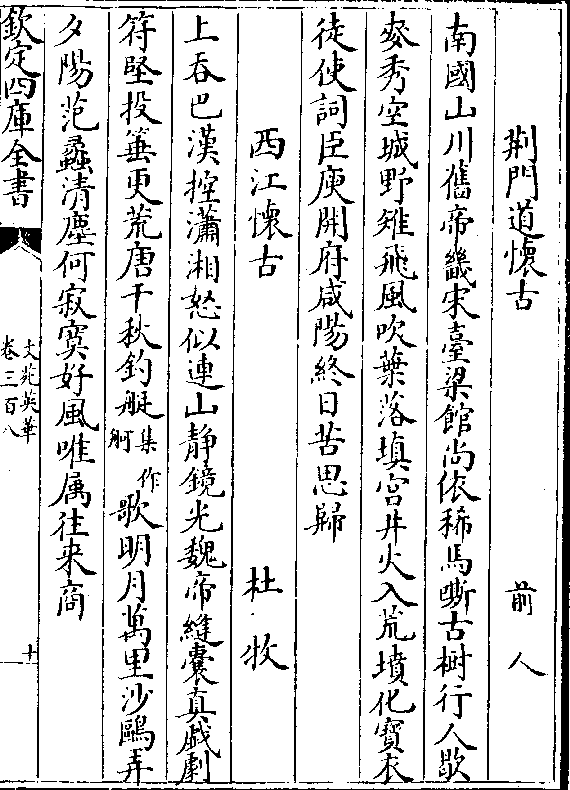 荆門道懷古　前人
南國山川舊帝畿宋臺梁館尚依稀馬嘶古樹行人歇
麥秀空城野雉飛風吹葉落填宮井火入荒墳化寳衣
徒使詞臣庾開府咸陽終日苦思歸
西江懷古　杜牧
上吞巴漢控瀟湘怒似連山静鏡光魏帝縫囊真戯劇
符堅投箠更荒唐千秋釣艇集作舸歌明月萬里沙鷗弄
夕陽范蠡清塵何寂寞好風唯属往来商
欽定四庫全書
文苑英華
卷三百八
十